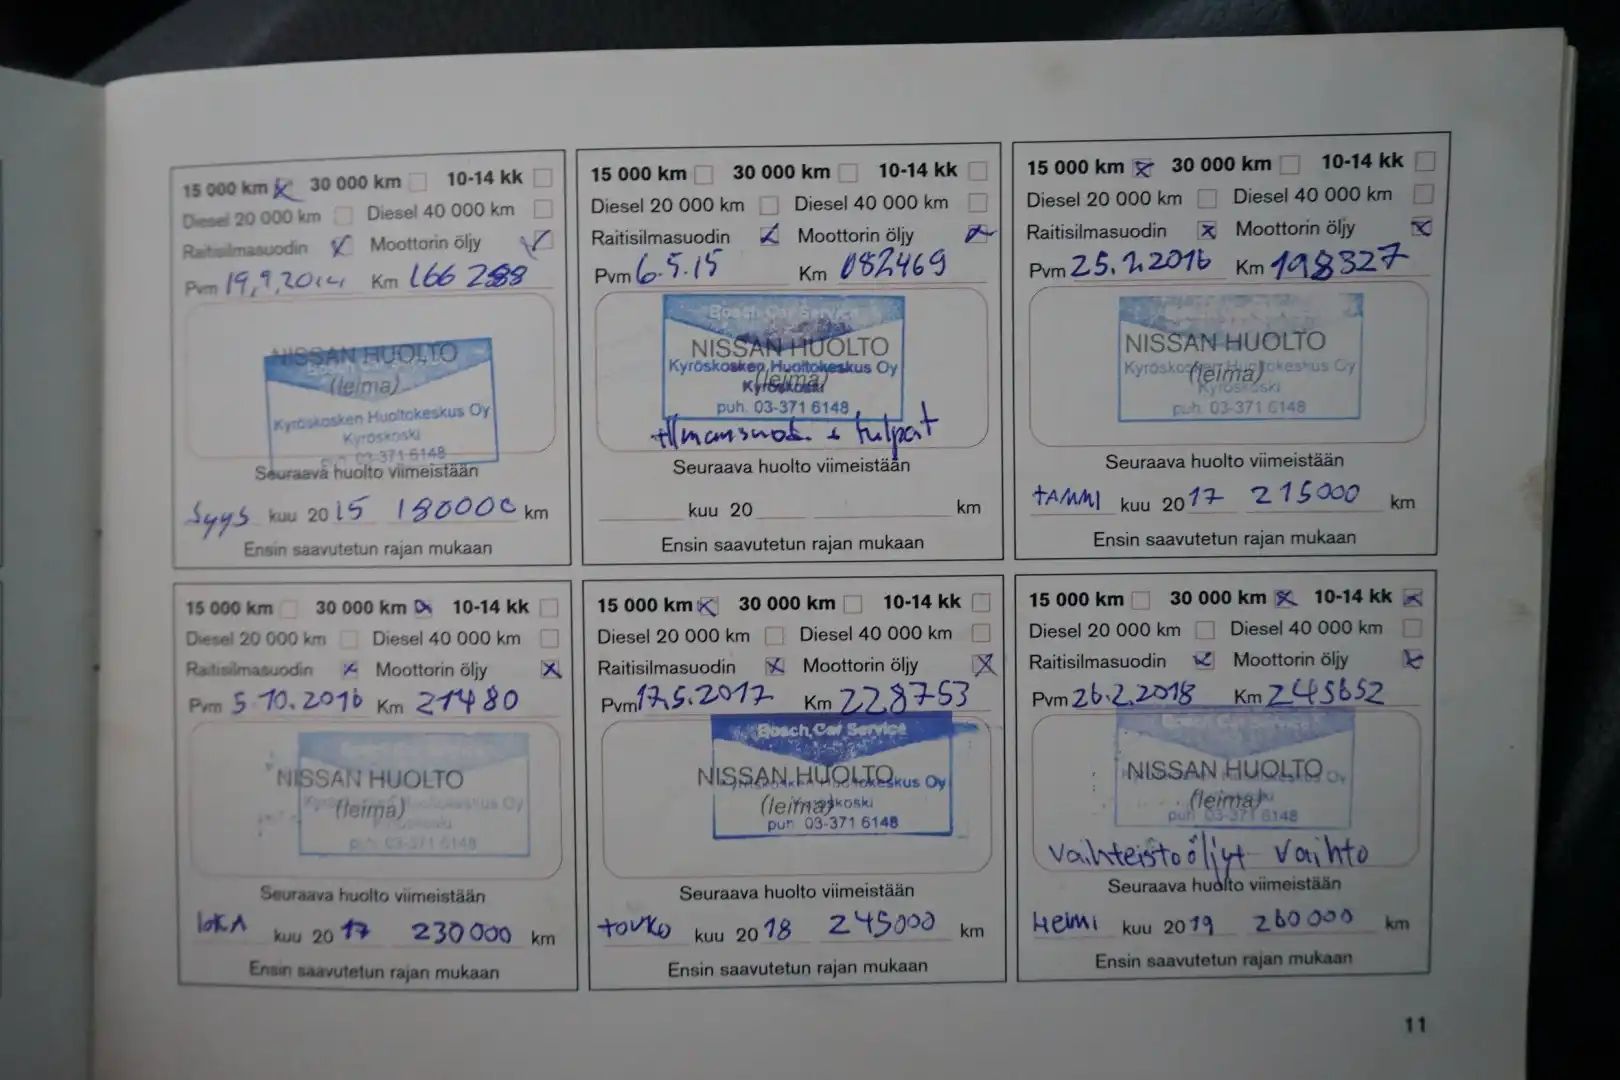 15 000 km 30 000 km 10-14 kk
Diesel 20 000 km Diesel 40 000 km
Raitisilmasuodin Moottorin öljy
Pvm 19.9.2014 Km 166 288
NISSAN HUOLTO
(leima)
Kyröskosken Huoltokeskus Oy
Kyröskoski
puh. 03-371 6148
Seuraava huolto viimeistään
Syys kuu 2015 180000 km
Ensin saavutetun rajan mukaan
15 000 km 30 000 km 10-14 kk
Diesel 20 000 km Diesel 40 000 km
Raitisilmasuodin Moottorin öljy
Pvm 6.5.15 Km 082469
Bosch Car Service
NISSAN HUOLTO
Kyröskosken Huoltokeskus Oy
(leima)
Kyröskoski
puh. 03-371 6148
Ilmansuod. + tulpat
Seuraava huolto viimeistään
kuu 20 km
Ensin saavutetun rajan mukaan
15 000 km 30 000 km 10-14 kk
Diesel 20 000 km Diesel 40 000 km
Raitisilmasuodin Moottorin öljy
Pvm 25.1.2016 Km 198327
NISSAN HUOLTO
Kyröskosken Huoltokeskus Oy
(leima)
Kyröskoski
puh. 03-371 6148
Seuraava huolto viimeistään
TAMMI kuu 2017 215000 km
Ensin saavutetun rajan mukaan
15 000 km 30 000 km 10-14 kk
Diesel 20 000 km Diesel 40 000 km
Raitisilmasuodin Moottorin öljy
Pvm 5.10.2016 Km 21480
NISSAN HUOLTO
Kyröskosken Huoltokeskus Oy
(leima)
puh. 03-371 6148
Seuraava huolto viimeistään
lokA kuu 2017 230000 km
Ensin saavutetun rajan mukaan
15 000 km 30 000 km 10-14 kk
Diesel 20 000 km Diesel 40 000 km
Raitisilmasuodin Moottorin öljy
Pvm 17.5.2017 Km 228753
Bosch Car Service
NISSAN HUOLTO
Kyröskosken Huoltokeskus Oy
(leima)
Kyröskoski
puh. 03-371 6148
Seuraava huolto viimeistään
touko kuu 2018 245000 km
Ensin saavutetun rajan mukaan
15 000 km 30 000 km 10-14 kk
Diesel 20 000 km Diesel 40 000 km
Raitisilmasuodin Moottorin öljy
Pvm 26.2.2018 Km 245652
Bosch Car Service
NISSAN HUOLTO
(leima)
puh. 03-371 6148
Vaihteistoöljyt vaihto
Seuraava huolto viimeistään
Helmi kuu 2019 260000 km
Ensin saavutetun rajan mukaan
11